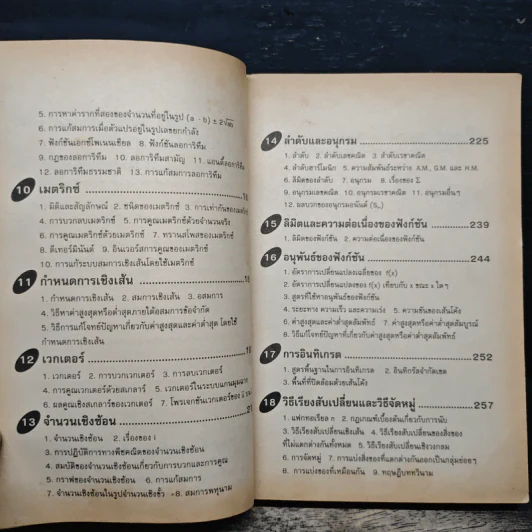 5. การหาค่ารากที่สองของจำนวนที่อยู่ในรูป (a + b) ± 2√ab
6. การแก้สมการเมื่อตัวแปรอยู่ในรูปเลขยกกำลัง
7. ฟังก์ชันเอกซ์โพเนนเชียล 8. ฟังก์ชันลอการิทึม
9. กฎของลอการิทึม 10. ลอการิทึมสามัญ 11. แอนติลอการิทึม
12. ลอการิทึมธรรมชาติ 13. การแก้สมการลอการิทึม
10 เมตริกซ์
1. มิติและสัญลักษณ์ 2. ชนิดของเมตริกซ์ 3. การเท่ากันของเมตริกซ์
4. การบวกลบเมตริกซ์ 5. การคูณเมตริกซ์ด้วยจำนวนจริง
6. การคูณเมตริกซ์ด้วยเมตริกซ์ 7. ทรานสโพสของเมตริกซ์
8. ดีเทอร์มินันต์ 9. อินเวอร์สการคูณของเมตริกซ์
10. การแก้ระบบสมการเชิงเส้นโดยใช้เมตริกซ์
11 กำหนดการเชิงเส้น
1. กำหนดการเชิงเส้น 2. สมการเชิงเส้น 3. อสมการ
4. วิธีหาค่าสูงสุดหรือต่ำสุดภายใต้อสมการข้อจำกัด
5. วิธีการแก้โจทย์ปัญหาเกี่ยวกับค่าสูงสุดและค่าต่ำสุด โดยใช้
กำหนดการเชิงเส้น
12 เวกเตอร์
1. เวกเตอร์ 2. การบวกเวกเตอร์ 3. การลบเวกเตอร์
4. การคูณเวกเตอร์ด้วยสเกลาร์ 5. เวกเตอร์ในระบบแกนมุมฉาก
6. ผลคูณเชิงสเกลาร์ของเวกเตอร์ 7. โพรเจกชันเวกเตอร์ของ
13 จำนวนเชิงซ้อน
1. จำนวนเชิงซ้อน 2. เรื่องของ i
3. การปฏิบัติการทางพีชคณิตของจำนวนเชิงซ้อน
4. สมบัติของจำนวนเชิงซ้อนเกี่ยวกับการบวกและการคูณ
5. กราฟของจำนวนเชิงซ้อน 6. การแก้สมการ
7. จำนวนเชิงซ้อนในรูปจำนวนเชิงขั้ว 8. สมการพหุนาม
14 ลำดับและอนุกรม 225
1. ลำดับ 2. ลำดับเลขคณิต 3. ลำดับเรขาคณิต
4. ลำดับฮาร์โมนิก 5. ความสัมพันธ์ระหว่าง A.M., G.M. และ H.M.
6. ลิมิตของลำดับ 7. อนุกรม 8. เรื่องของ Σ
9. อนุกรมเลขคณิต 10. อนุกรมเรขาคณิต 11. อนุกรมอื่นๆ
12. ผลบวกของอนุกรมอนันต์ (S∞)
15 ลิมิตและความต่อเนื่องของฟังก์ชัน 239
1. ลิมิตของฟังก์ชัน 2. ความต่อเนื่องของฟังก์ชัน
16 อนุพันธ์ของฟังก์ชัน 244
1. อัตราการเปลี่ยนแปลงเฉลี่ยของ f(x)
2. อัตราการเปลี่ยนแปลงของ f(x) เทียบกับ x ขณะ x ใดๆ
3. สูตรที่ใช้หาอนุพันธ์ของฟังก์ชัน
4. ระยะทาง ความเร็ว และความเร่ง 5. ความชันของเส้นโค้ง
6. ค่าสูงสุดและค่าต่ำสุดสัมพัทธ์ 7. ค่าสูงสุดหรือค่าต่ำสุดสัมบูรณ์
8. วิธีแก้โจทย์ปัญหาที่เกี่ยวกับค่าสูงสุดและค่าต่ำสุด
17 การอินทิเกรต 252
1. สูตรพื้นฐานในการอินทิเกรต 2. อินทิกรัลจำกัดเขต
3. พื้นที่ที่ปิดล้อมด้วยเส้นโค้ง
18 วิธีเรียงสับเปลี่ยนและวิธีจัดหมู่ 257
1. แฟกทอเรียล n 2. กฎเกณฑ์เบื้องต้นเกี่ยวกับการนับ
3. วิธีเรียงสับเปลี่ยนเชิงเส้น 4. วิธีเรียงสับเปลี่ยนของสิ่งของ
ที่ไม่แตกต่างกันทั้งหมด 5. วิธีเรียงสับเปลี่ยนเชิงวงกลม
6. การจัดหมู่ 7. การแบ่งสิ่งของที่แตกต่างกันออกเป็นกลุ่มย่อยๆ
8. การแบ่งของที่เหมือนกัน 9. ทฤษฎีบททวินาม